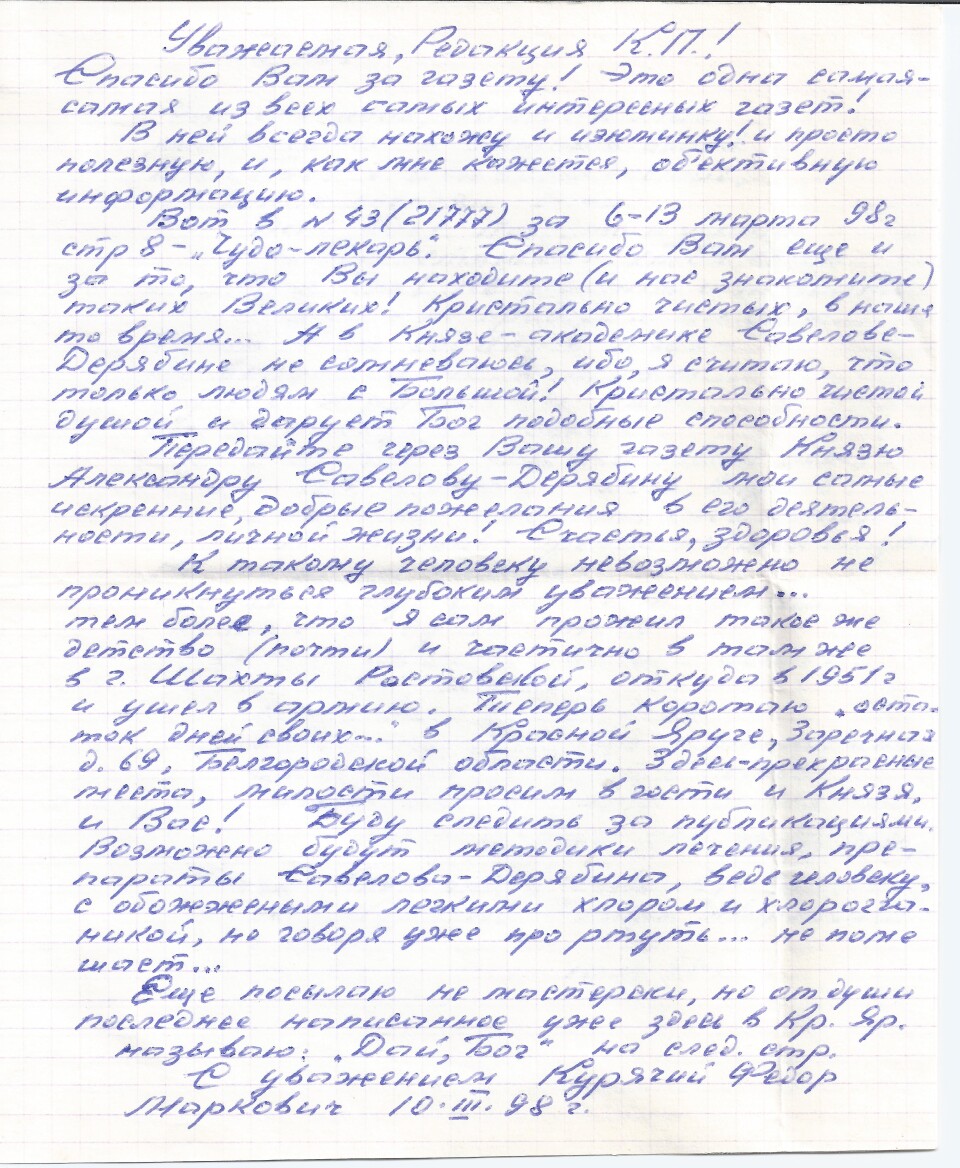 Уважаемая, Редакция К.П.!
Спасибо Вам за газету! Это одна самая-
самая из всех самых интересных газет!
В ней всегда нахожу и изюминку! и просто
полезную, и, как мне кажется, объективную
информацию.
Вот в N 43 (21777) за 6-13 марта 98г
стр 8 - „Чудо-лекарь“. Спасибо Вам еще и
за то, что Вы находите (и нас знакомите)
таких Великих! Кристально чистых, в наше
то время... А в Князе-академике Савелове-
Дерябине не сомневаюсь, ибо, я считаю, что
только людям с Большой! Кристально чистой
душой и дарует Бог подобные способности.
Передайте через Вашу газету Князю
Александру Савелову-Дерябину мои самые
искренние, добрые пожелания в его деятель-
ности, личной жизни! Счастья, здоровья!
К такому человеку невозможно не
проникнуться глубоким уважением...
тем более, что я сам прожил такое же
детство (почти) и частично в там же
в г. Шахты Ростовской, откуда в 1951г
и ушел в армию. Теперь коротаю „оста-
ток дней своих...“ в Красной Яруге, Заречная
д. 69, Белгородской области. Здесь-прекрасные
места, милости просим в гости и Князя,
и Вас! Буду следить за публикациями.
Возможно будут методики лечения, пре-
параты Савелова-Дерябина, ведь человеку,
с обожжеными легкими хлором и хлорорга-
никой, не говоря уже про ртуть... не поме
шает...
Еще посылаю не мастерски, но от души
последнее написанное уже здесь в Кр. Яр.
называю: „Дай, Бог“ на след. стр.
С уважением Курячий Федор
Маркович 10.III.98 г.